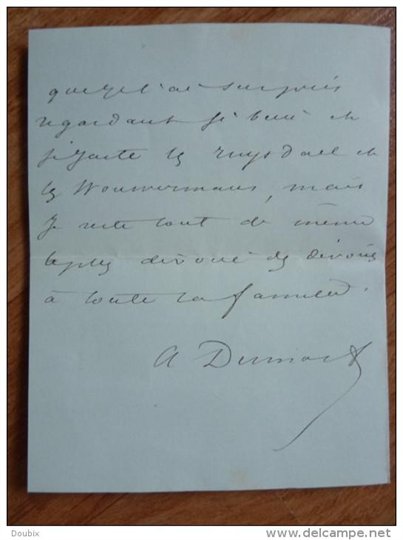 que je l'ai surpris
regardant si bien et
si juste les ruysdael et
les Wouwermans, mais
je reste tout de même
le plus dévoué des dévoués
à toute la famille.
A Dumont
Doubix
www.delcampe.net